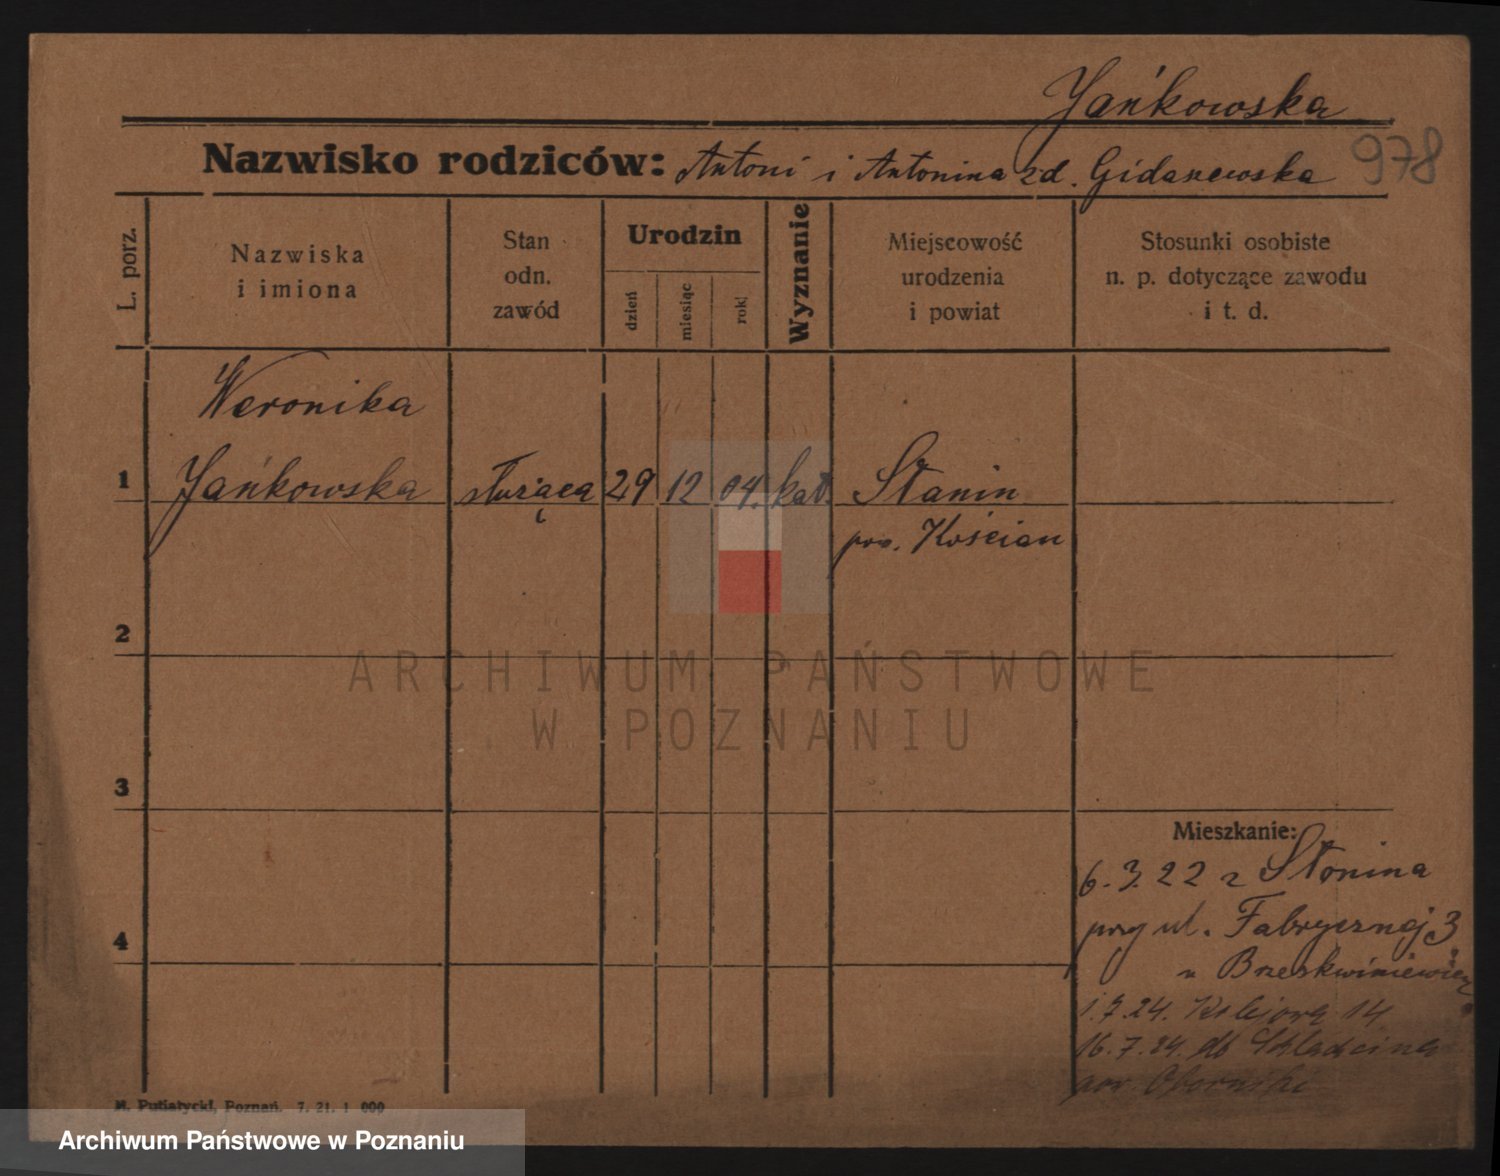 Jańkowska
978
Nazwisko rodziców: Antoni i Antonina zd. Gidanewska
L. porz.
Nazwiska
i imiona
Stan
odn.
zawód
Urodzin
dzień
miesiąc
rok
Wyznanie
Miejscowość
urodzenia
i powiat
Stosunki osobiste
n. p. dotyczące zawodu
i t. d.
Weronika
1 Jańkowska służąca 29 12 04. kat. Stanin
pow. Kościan
2
ARCHIWUM PAŃSTWOWE
W POZNANIU
3
Mieszkanie:
6.3.22 z Słonina
przy ul. Fabrycznej 3
4
u
1.7.24. Kolejowa 14
16.7.24. do
pow. Oborniki
M. Putiatycki, Poznań. 7. 21. 1 000
Archiwum Państwowe w Poznaniu